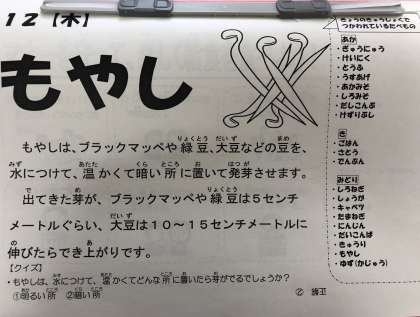 12【木】
もやし
もやしは、ブラックマッペや緑豆、大豆などの豆を、
水につけて、温かくて暗い所に置いて発芽させます。
出てきた芽が、ブラックマッペや緑豆は5センチ
メートルぐらい、大豆は10～15センチメートルに
伸びたらでき上がりです。
【クイズ】
・もやしは、水につけて、温かくてどんな所に置いたら芽がでるでしょうか？
①明るい所 ②暗い所
きょうのきゅうしょくで
つかわれているたべもの
あか
・ぎゅうにゅう
・けいにく
・とうふ
・うすあげ
・あかみそ
・しろみそ
・だしこんぶ
・けずりぶし
き
・ごはん
・さとう
・でんぷん
みどり
・しろねぎ
・しょうが
・キャベツ
・たまねぎ
・にんじん
・だいこんば
・きゅうり
・もやし
・ゆず(かじゅう)